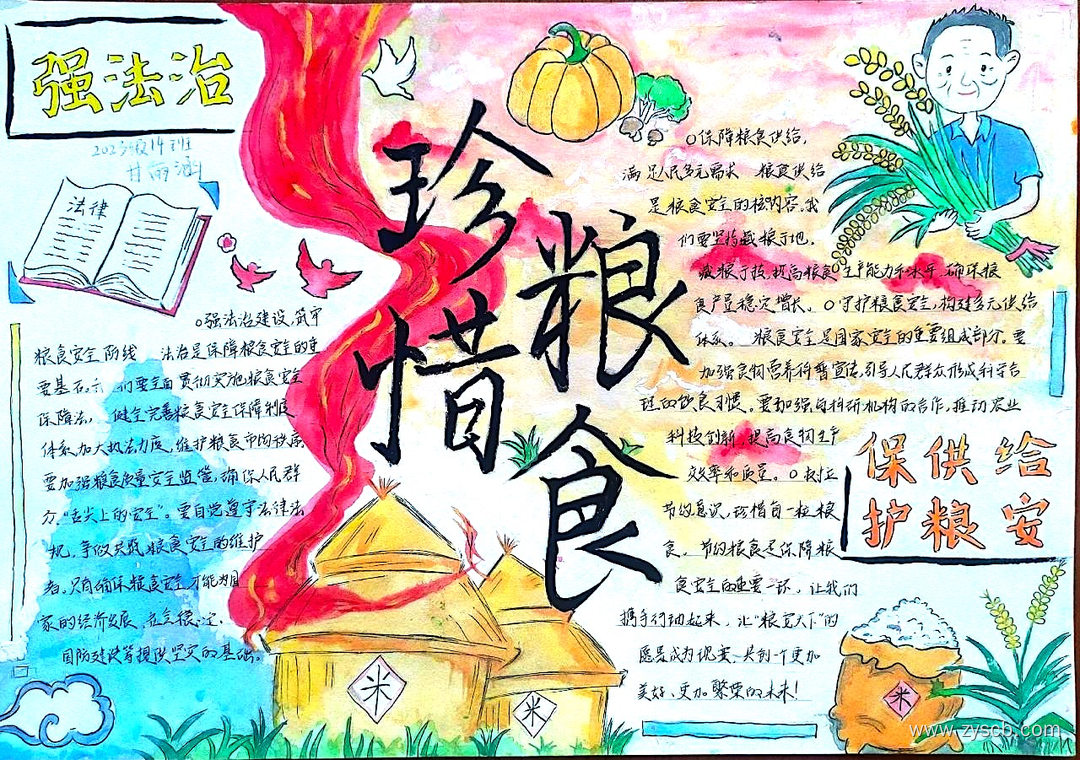 强法治
2023级14班
甘雨涵
法律
珍惜
粮食
○强法治建设,筑牢
粮食安全防线 法治是保障粮食安全的重
要基石,我们要全面贯彻实施粮食安全
保障法, 健全完善粮食安全保障制度
体系,加大执法力度,维护粮食市场秩序
要加强粮食质量安全监管,确保人民群
众“舌尖上的安全”。要自觉遵守法律法
规,争做关注粮食安全的维护
者。只有确保粮食安全才能为国
家的经济发展、社会稳定、
国防建设等提供坚实的基础。
○保障粮食供给,
满足人民多元需求 粮食供给
是粮食安全的核内容,我
们要坚持藏粮于地,
藏粮于技,提高粮食生产能力和水平,确保粮
食产量稳定增长。○守护粮食安全,构建多元供给
体系。 粮食安全是国家安全的重要组成部分。要
加强食物营养科普宣传,引导人民群众形成科学合
理的饮食习惯。要加强与科研机构的合作,推动农业
科技创新,提高食物生产
效率和质量。○树立
节约意识,珍惜每一粒粮
食, 节约粮食是保障粮
食安全的重要一环, 让我们
携手行动起来, 让“粮安天下”的
愿景成为现实,共创一个更加
美好、更加繁荣的未来!
保供给
护粮安
米
米
米
www.zyscb.com